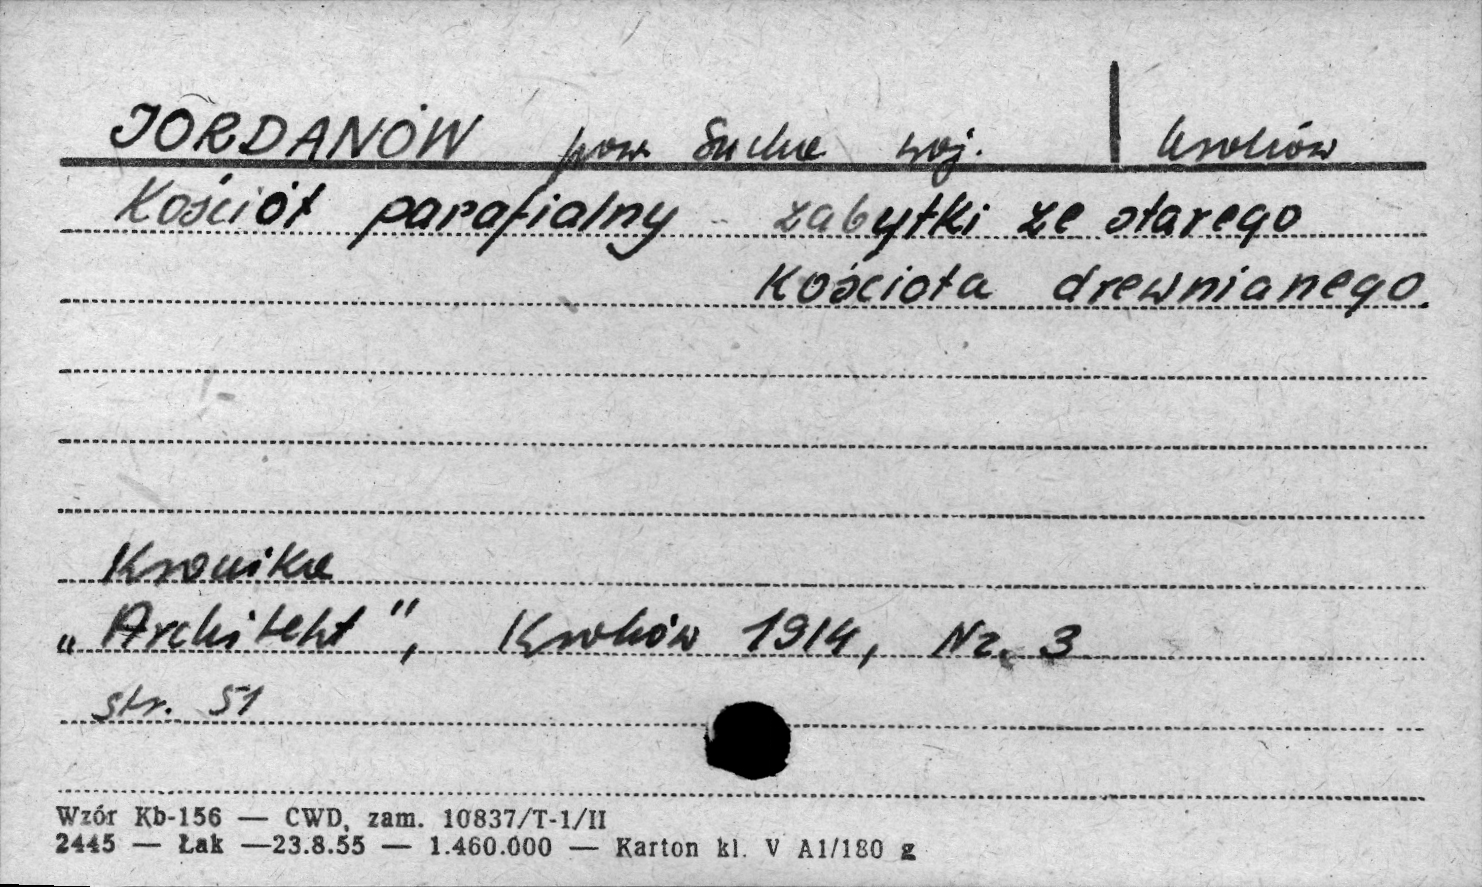 JORDANÓW pow Sucha woj. Kraków
Kościół parafialny zabytki ze starego
Kościoła drewnianego.
Kronika
„Architekt", Kraków 1914, Nr. 3
str. 51
Wzór Kb-156 — CWD, zam. 10837/T-1/II
2445 — Łak —23.8.55 — 1.460.000 — Karton kl. V A1/180 g